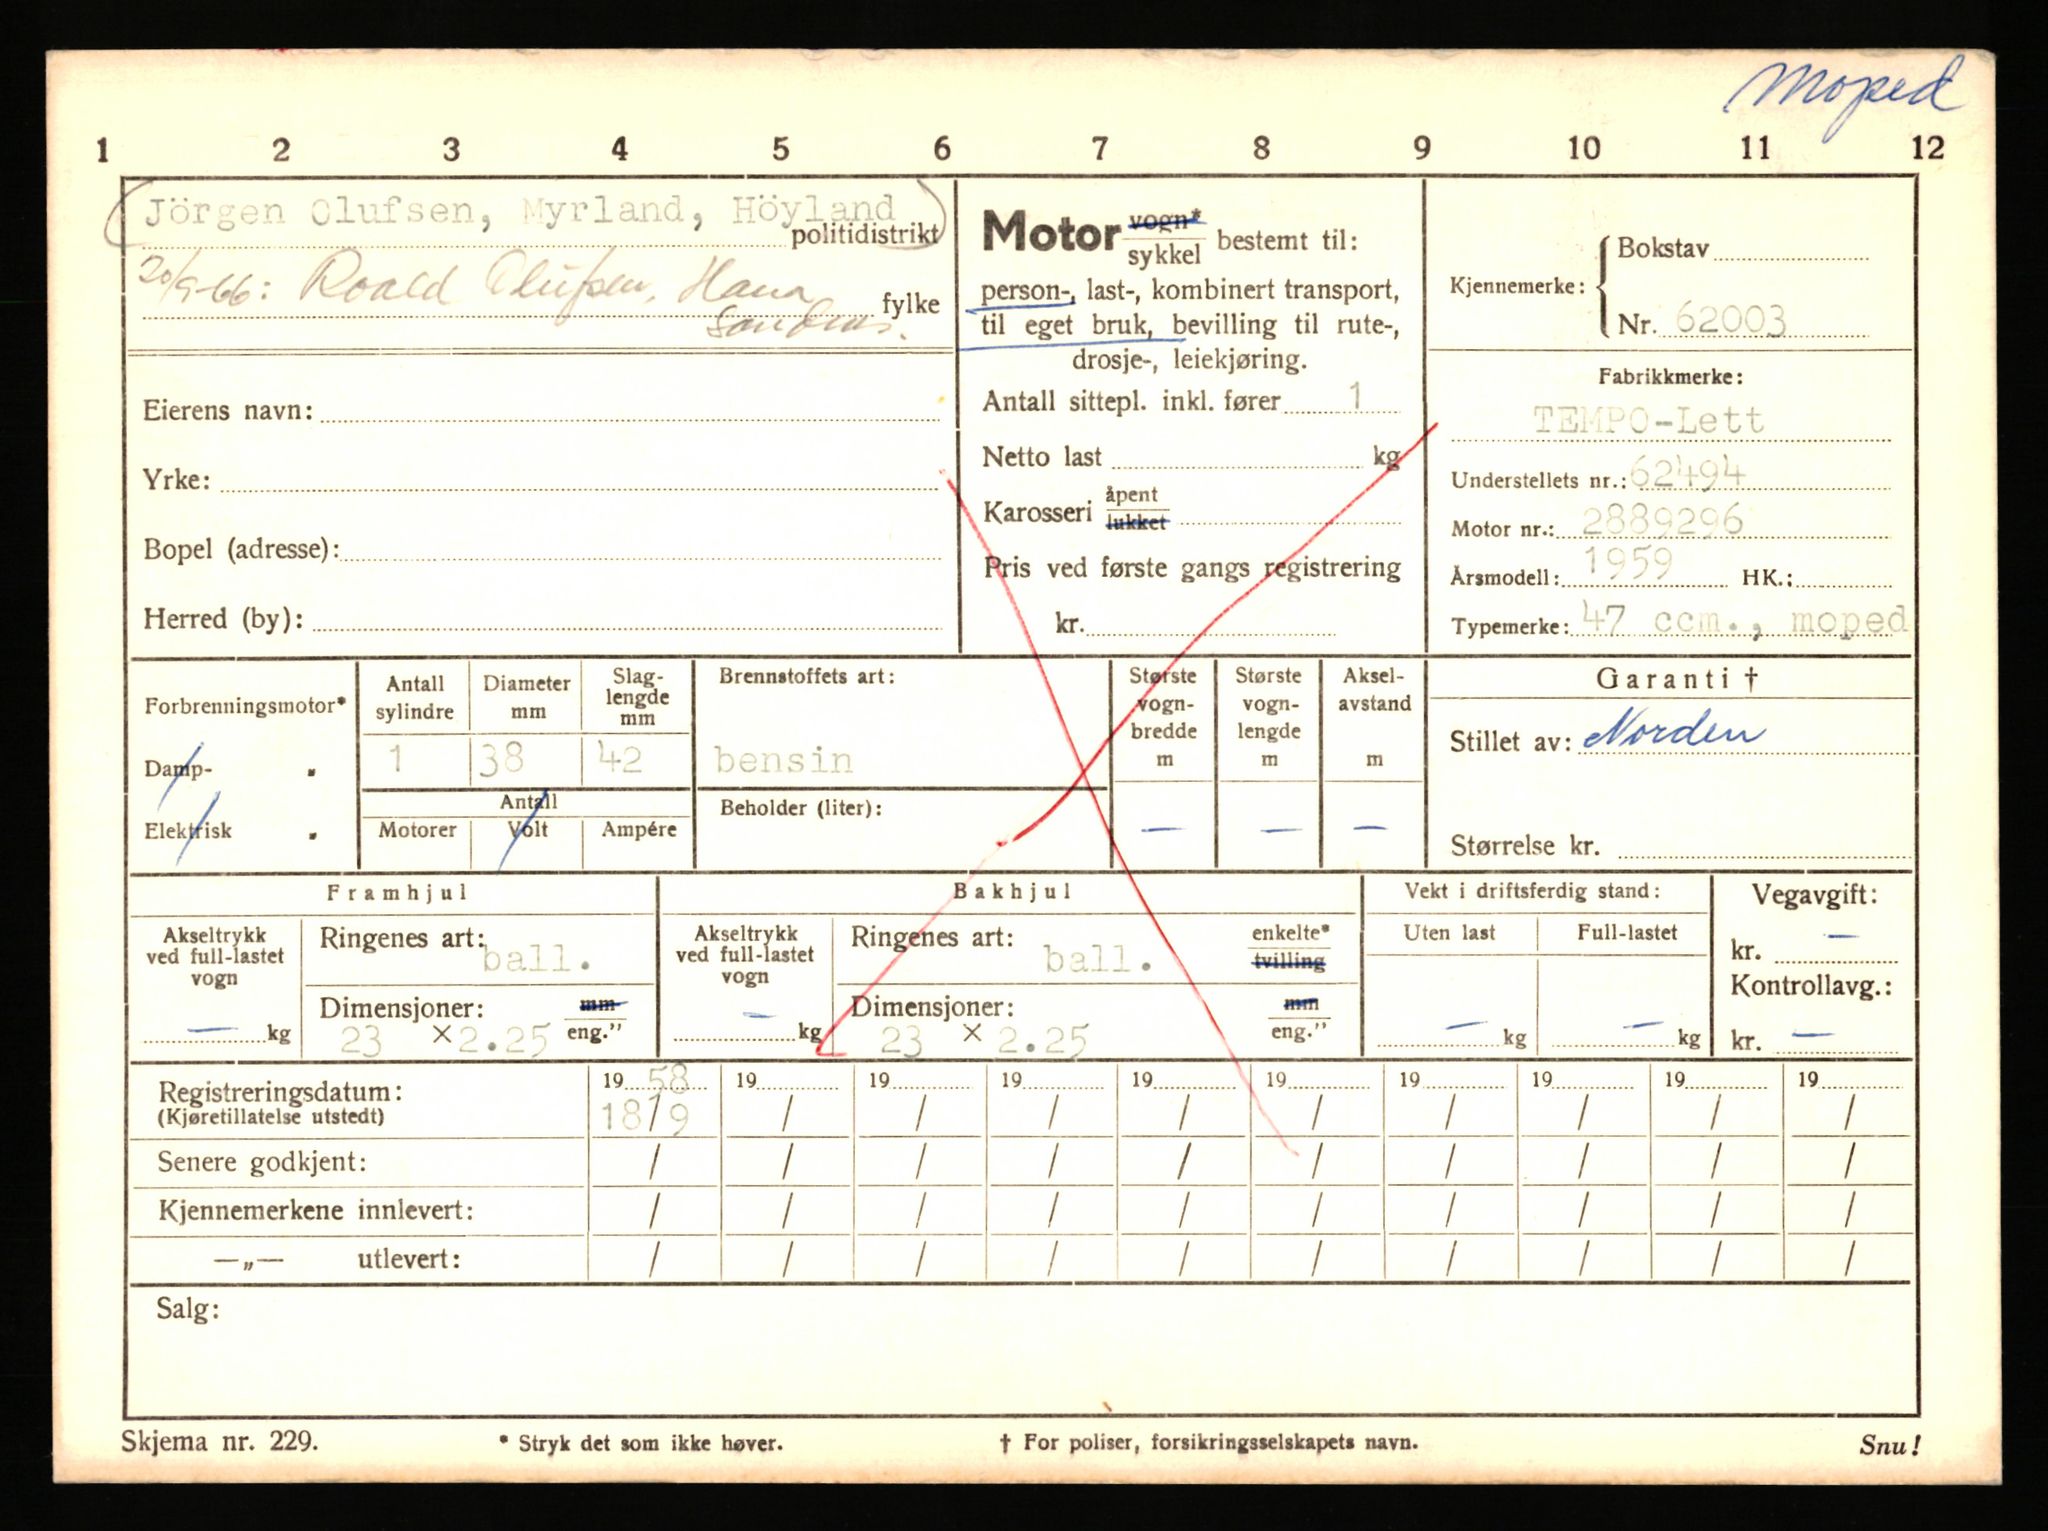 Moped
1 2 3 4 5 6 7 8 9 10 11 12
Jörgen Olufsen, Myrland, Höyland
politidistrikt
20/9-66: Roald Olufsen, Hana
fylke
Sandnes.
Eierens navn:
Yrke:
Bopel (adresse):
Herred (by):
Motor vogn* / sykkel bestemt til:
person-, last-, kombinert transport,
til eget bruk, bevilling til rute-,
drosje-, leiekjøring.
Antall sittepl. inkl. fører 1
Netto last kg
Karosseri åpent / lukket
Pris ved første gangs registrering
kr.
Kjennemerke: Bokstav
Nr. 62003
Fabrikkmerke:
TEMPO-Lett
Understellets nr.: 62494
Motor nr.: 2889296
Årsmodell: 1959 HK.:
Typemerke: 47 ccm., moped
Forbrenningsmotor*
Damp- "
Elektrisk "
Antall sylindre
1
Diameter mm
38
Slag-lengde mm
42
Antall
Motorer Volt Ampére
Brennstoffets art:
bensin
Beholder (liter):
Største vogn-bredde m
—
Største vogn-lengde m
—
Aksel-avstand m
—
Garanti †
Stillet av: Norden
Størrelse kr.
Framhjul
Akseltrykk ved full-lastet vogn
— kg
Ringenes art: ball.
Dimensjoner: mm / eng."
23 × 2.25
Bakhjul
Akseltrykk ved full-lastet vogn
— kg
Ringenes art: ball. enkelte* / tvilling
Dimensjoner: mm / eng."
23 × 2.25
Vekt i driftsferdig stand:
Uten last Full-lastet
— kg — kg
Vegavgift:
kr. —
Kontrollavg.:
kr. —
Registreringsdatum: 19 58 19 19 19 19 19 19 19 19 19
(Kjøretillatelse utstedt) 18/9 / / / / / / / / /
Senere godkjent: / / / / / / / / / /
Kjennemerkene innlevert: / / / / / / / / / /
—„— utlevert: / / / / / / / / / /
Salg:
Skjema nr. 229. * Stryk det som ikke høver. † For poliser, forsikringsselskapets navn. Snu!